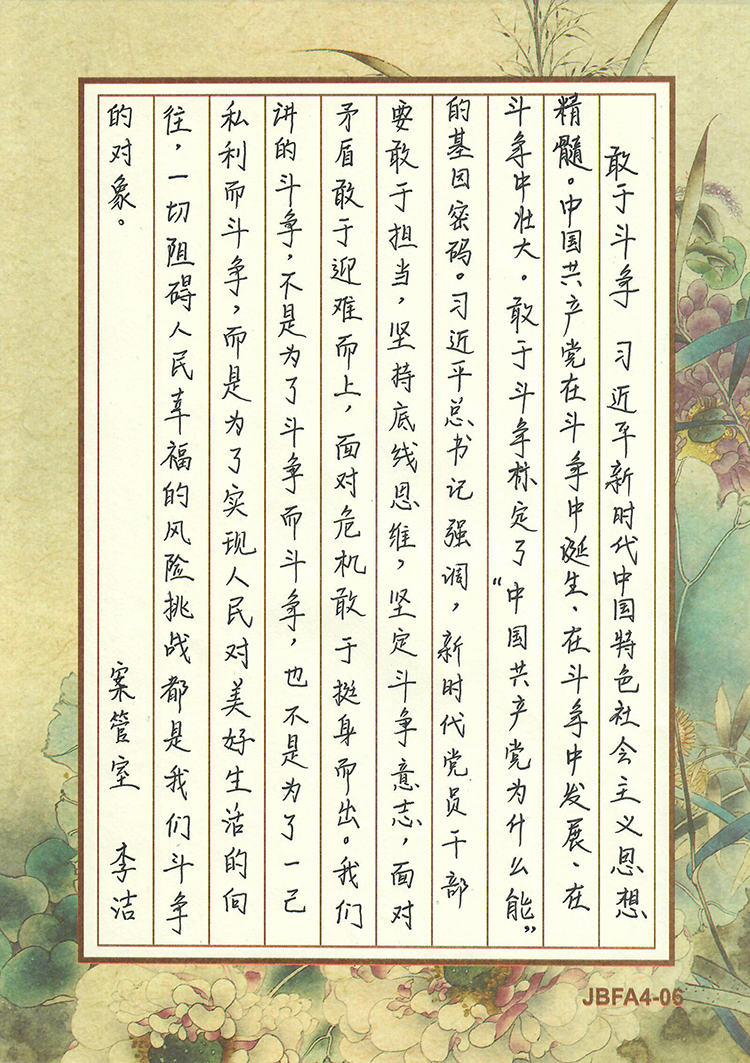 敢于斗争 习近平新时代中国特色社会主义思想
精髓。中国共产党在斗争中诞生、在斗争中发展、在
斗争中壮大。敢于斗争标定了“中国共产党为什么能”
的基因密码。习近平总书记强调，新时代党员干部
要敢于担当，坚持底线思维，坚定斗争意志，面对
矛盾敢于迎难而上，面对危机敢于挺身而出。我们
讲的斗争，不是为了斗争而斗争，也不是为了一己
私利而斗争，而是为了实现人民对美好生活的向
往，一切阻碍人民幸福的风险挑战都是我们斗争
的对象。
案管室 李洁
JBFA4-06